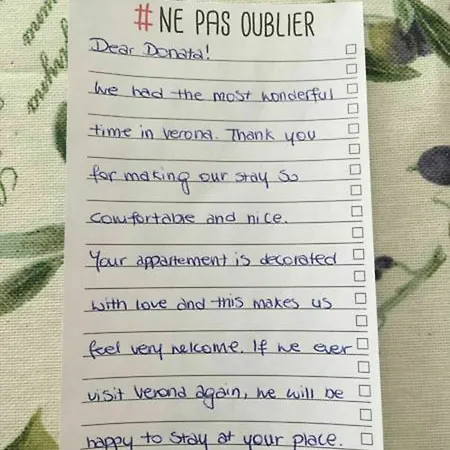 #NE PAS OUBLIER
Dear Donata!
We had the most wonderful
time in verona. Thank you
for making our stay so
comfortable and nice.
Your appartement is decorated
with love and this makes us
feel very welcome. If we ever
visit Verona again, we will be
happy to stay at your place.